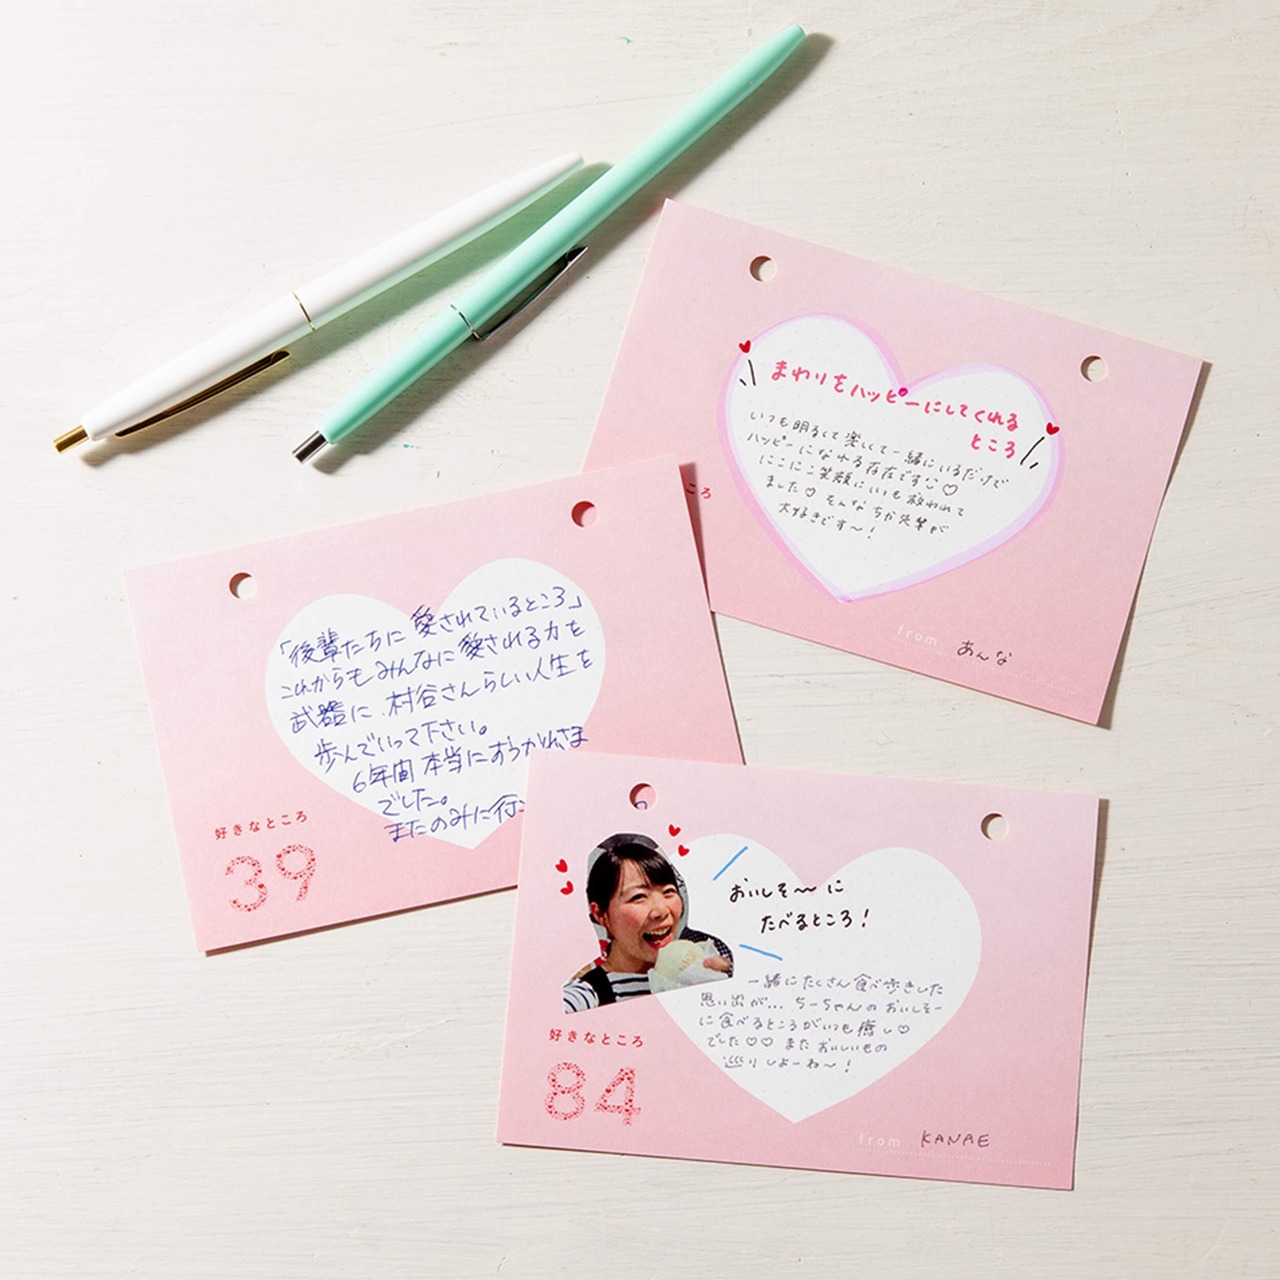 まわりをハッピーにしてくれる
ところ
いつも明るくて楽しくて一緒にいるだけで
ハッピーになれる存在です♡
にこにこ笑顔にいつも救われて
ました♡ そんな ちか先輩が
大好きです〜!
ころ
from あんな
「後輩たちに 愛されているところ」
これからも みんなに 愛される力を
武器に、村谷さんらしい人生を
歩んでいって下さい。
6年間 本当におつかれさま
でした。
またのみに行こ
好きなところ
39
おいしそ〜に
たべるところ!
一緒にたくさん食べ歩きした
思い出が... ちーちゃんの おいしそー
に食べるところがいつも癒し♡
でした♡♡ また おいしいもの
巡り しよーね〜!
好きなところ
84
from KANAE